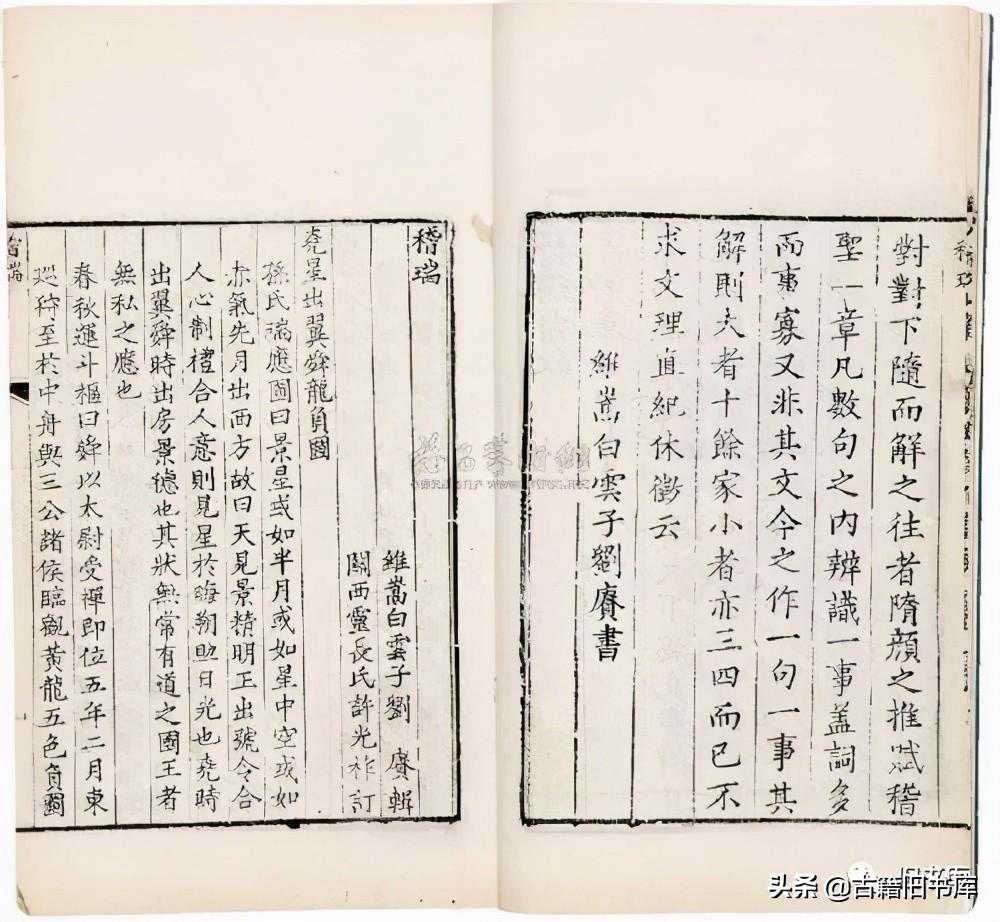 對對下隨而解之往者隋顔之推賦稽
聖一章凡數句之内辨識一事盖詞多
而事寡又非其文今之作一句一事其
解則大者十餘家小者亦三四而已不
求文理直紀休徵云
維嵩白雲子劉賡書
稽瑞
維嵩白雲子劉賡輯
關西靈長氏許光祚訂
堯星出翼舜龍負圖
孫氏瑞應圖曰景星或如半月或如星中空或如
赤氣先月出西方故曰天見景精明王出號令合
人心制禮合人意則見星於晦朔助日光也堯時
出翼舜時出房景德也其狀無常有道之國王者
無私之應也
春秋運斗樞曰舜以太尉受禪即位五年二月東
廵狩至於中舟與三公諸侯臨觀黄龍五色負圖
头条@古籍旧书库